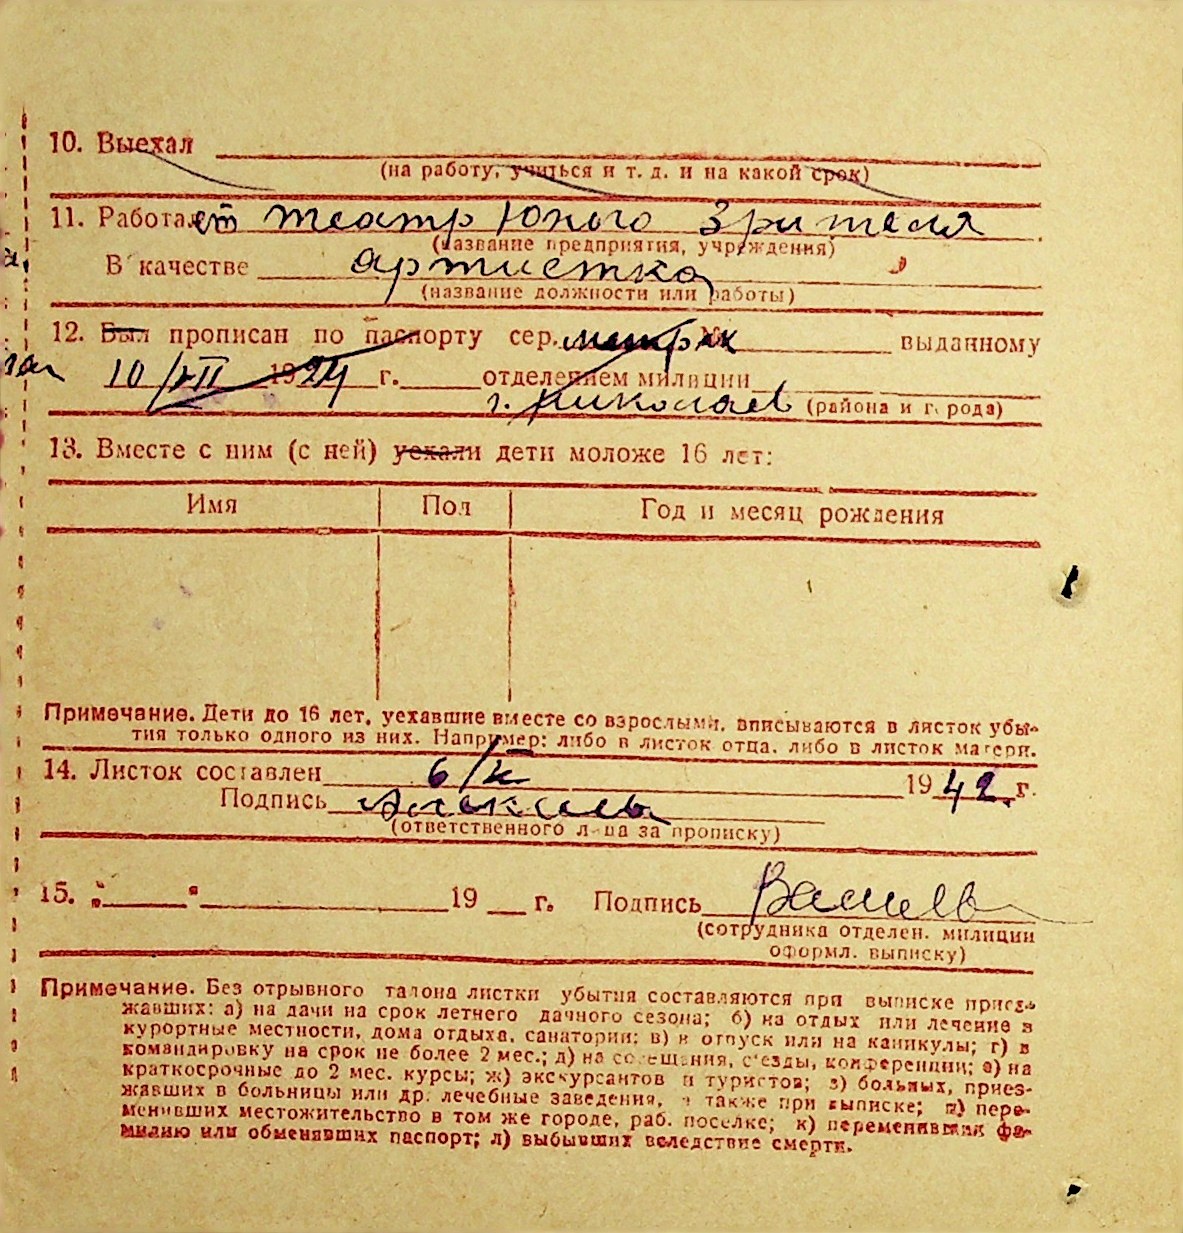 10. Выехал
(на работу, учиться и т. д. и на какой срок)
11. Работает театр Юного Зрителя
(название предприятия, учреждения)
В качестве артистка
(название должности или работы)
12. Был прописан по паспорту сер. № выданному
10/VII 1924 г. отделением милиции
г. Николаев (района и города)
13. Вместе с ним (с ней) уехали дети моложе 16 лет:
Имя Пол Год и месяц рождения
Примечание. Дети до 16 лет, уехавшие вместе со взрослыми, вписываются в листок убы-
тия только одного из них. Например: либо в листок отца, либо в листок матери.
14. Листок составлен 6/X 1942 г.
Подпись
(ответственного лица за прописку)
15. „ “ 19 г. Подпись
(сотрудника отделен. милиции
оформл. выписку)
Примечание. Без отрывного талона листки убытия составляются при выписке приез-
жавших: а) на дачи на срок летнего дачного сезона; б) на отдых или лечение в
курортные местности, дома отдыха, санатории; в) в отпуск или на каникулы; г) в
командировку на срок не более 2 мес.; д) на совещания, с'езды, конференции; е) на
краткосрочные до 2 мес. курсы; ж) экскурсантов и туристов; з) больных, приез-
жавших в больницы или др. лечебные заведения, а также при выписке; и) пере-
менивших местожительство в том же городе, раб. поселке; к) переменивших фа-
милию или обменявших паспорт; л) выбывших вследствие смерти.